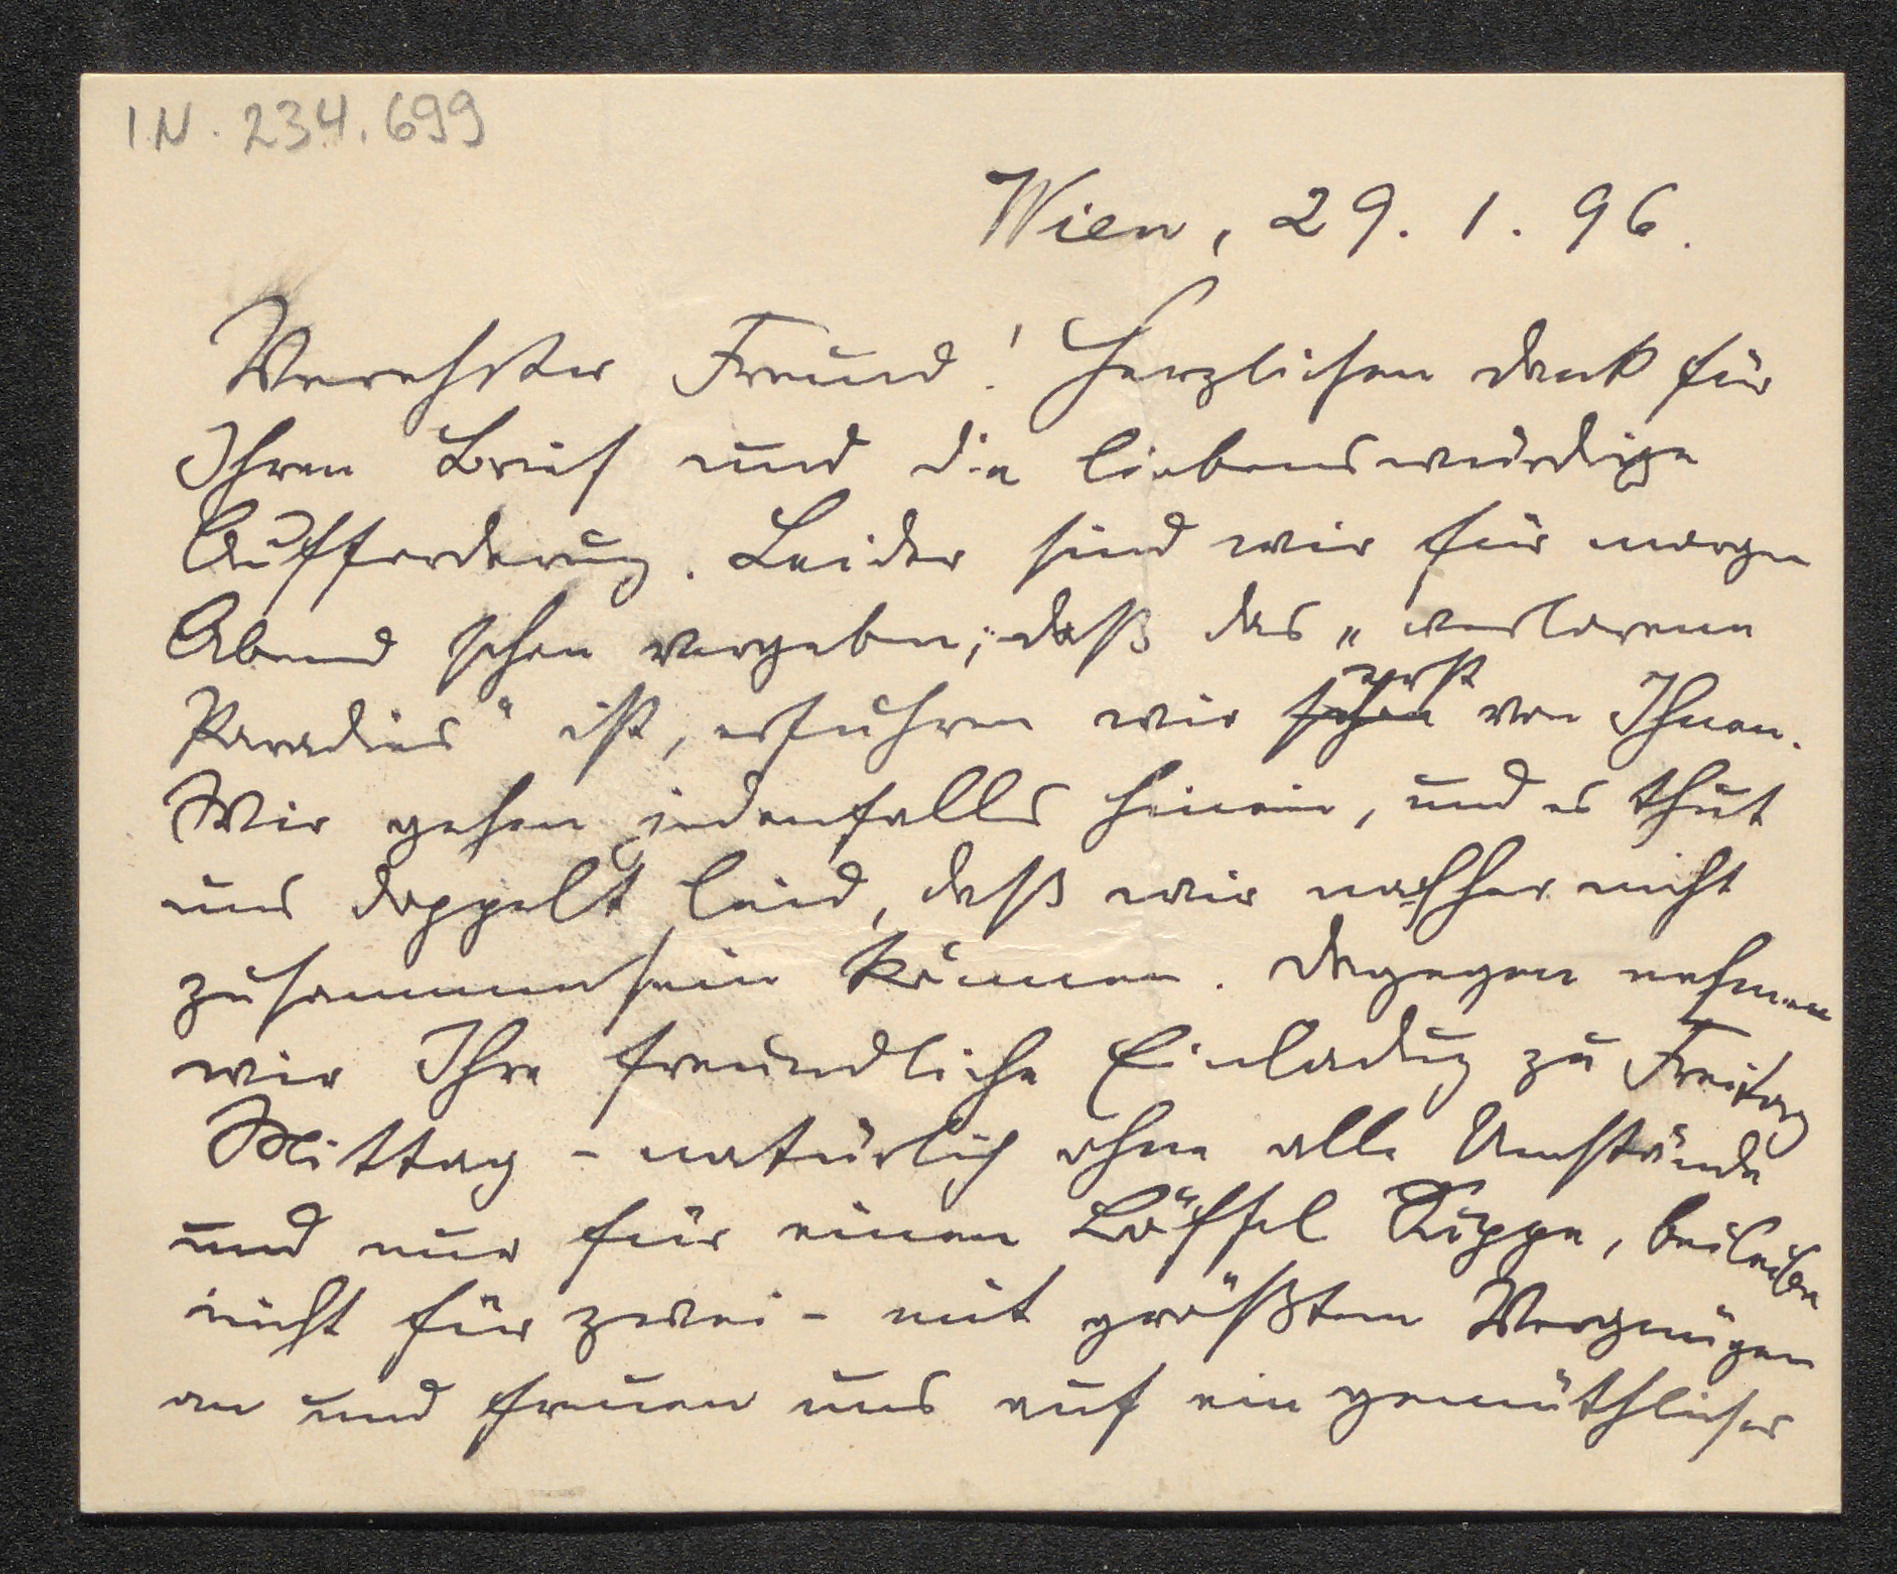 I.N. 234.699
Wien, 29. 1. 96.
Verehrter Freund! Herzlichen Dank für
Ihren Brief und die liebenswürdige
Aufforderung. Leider sind wir für morgen
Abend schon vergeben; daß das „verlorene
Paradies“ ist, erfuhren wir schon erst von Ihnen.
Wir gehen jedenfalls hinein, und es thut
uns doppelt leid, daß wir nachher nicht
zusammensein können. Dagegen nehmen
wir Ihre freundliche Einladung zu Freitag
Mittag – natürlich ohne alle Umstände
und nur für einen Löffel Suppe, beileibe
nicht für zwei – mit größtem Vergnügen
an und freuen uns auf ein gemüthliches